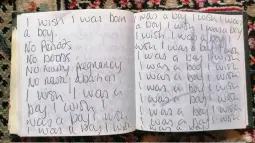 I wish I was born
a boy.
No Periods
No boobs
No pregnancy
No abortion
I wish I was a
boy I wish I
was a boy I wish
I was a boy I wish
I was a boy I wish I was
a boy I wish I was a boy
I wish I was a boy I
wish I was a boy
I was a boy I wish
I was a boy I wish
I was a boy I wish
I was a boy I wish
I was a boy I wish
was a boy I wish